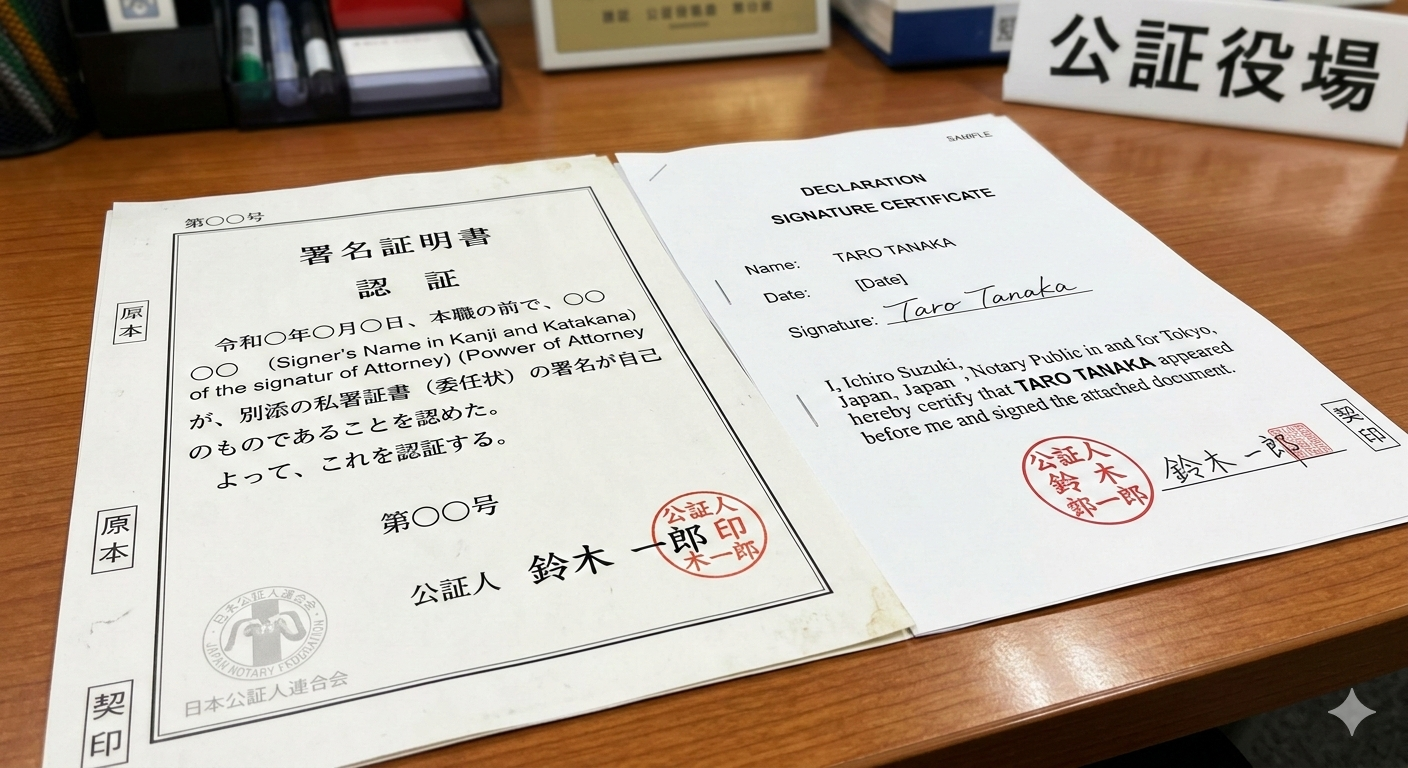 公証役場
第〇〇号
署名証明書
認証
令和〇年〇月〇日、本職の前で、〇〇
〇〇 (Signer's Name in Kanji and Katakana)
of the signatur of Attorney) (Power of Attorney
が、別添の私署証書（委任状）の署名が自己
のものであることを認めた。
よって、これを認証する。
第〇〇号
公証人 鈴木 一郎
公証人
印
木一郎
原本
原本
契印
日本公証人連合会
JAPAN NOTARY
日本公証人連合会
SAMPLE
DECLARATION
SIGNATURE CERTIFICATE
Name: TARO TANAKA
Date: [Date]
Signature: Taro Tanaka
I, Ichiro Suzuki,
Japan, Japan , Notary Public in and for Tokyo,
hereby certify that TARO TANAKA appeared
before me and signed the attached document.
公証人
鈴木
一郎
鈴木一郎
契印